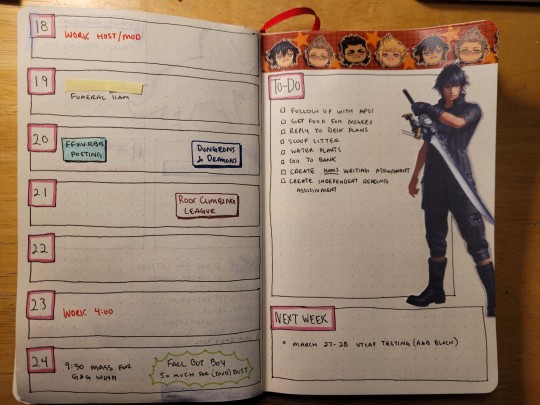 18
WORK HOST/MOD
19
FUNERAL 11AM
20
FFXVRBB
POSTING
DUNGEONS
& DRAGONS
21
ROCK CLIMBING
LEAGUE
22
23
WORK 4:00
24
9:30 MASS FOR
G&G
FALL OUT BOY
SO MUCH FOR (TOUR) DUST
TO-DO
FOLLOW UP WITH APSI
GET FOOD FOR
REPLY TO DECK PLANS
SCOOP LITTER
WATER PLANTS
GO TO BANK
CREATE WRITING ASSIGNMENT
CREATE INDEPENDENT READING
ASSIGNMENT
NEXT WEEK
MARCH 27-28 TESTING (A&B BLOCK)